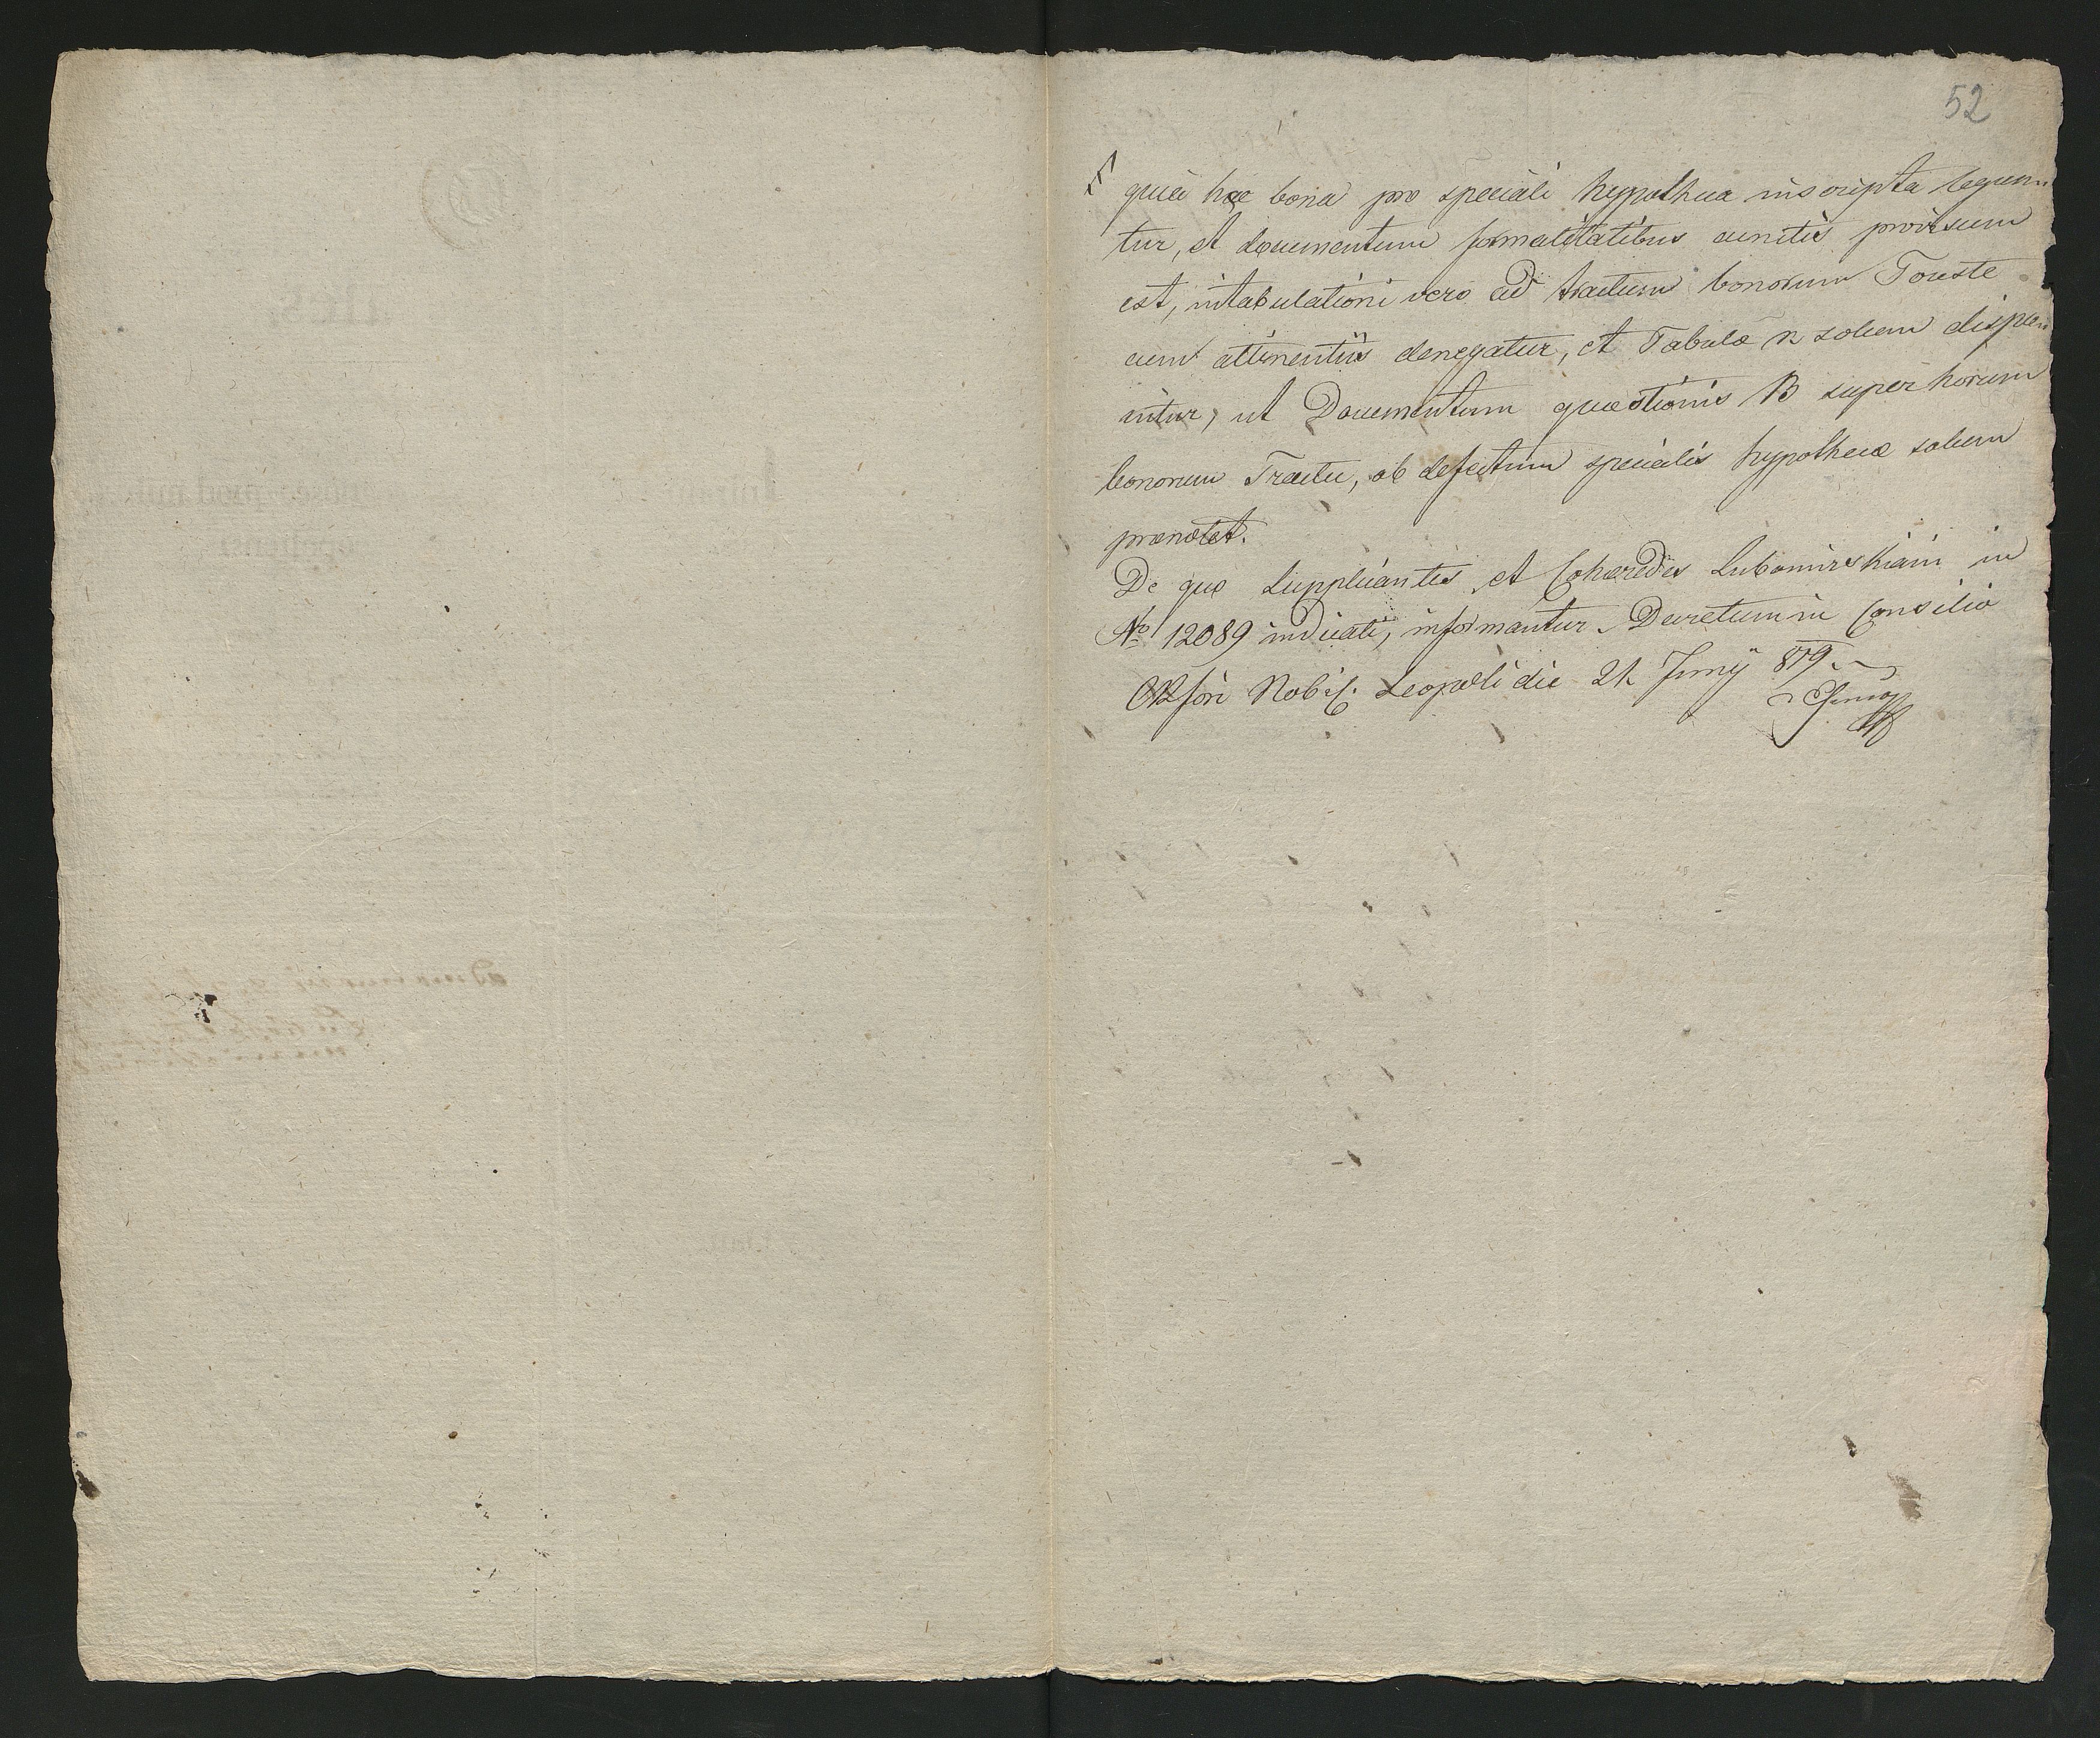 52
quia hae bona pro speciali hypotheca inscripta legun
tur, et documentum formalitatibus cunctis provisum
est, intabulationi vero ad tractum bonorum Touste
cum attinentiis denegatur, et Tabulae R solum dispo
nitur, ut Documentum quaestionis B super horum
bonorum Tractu, ob defectum specialis hypothecae solum
praenotet.
De quo Supplicantes et Cohaeredes Lubomirskiani in
No 12089 indicati, informantur. Decretum in Consilio
CR fori Nobil. Leopoli die 21 Junij 819